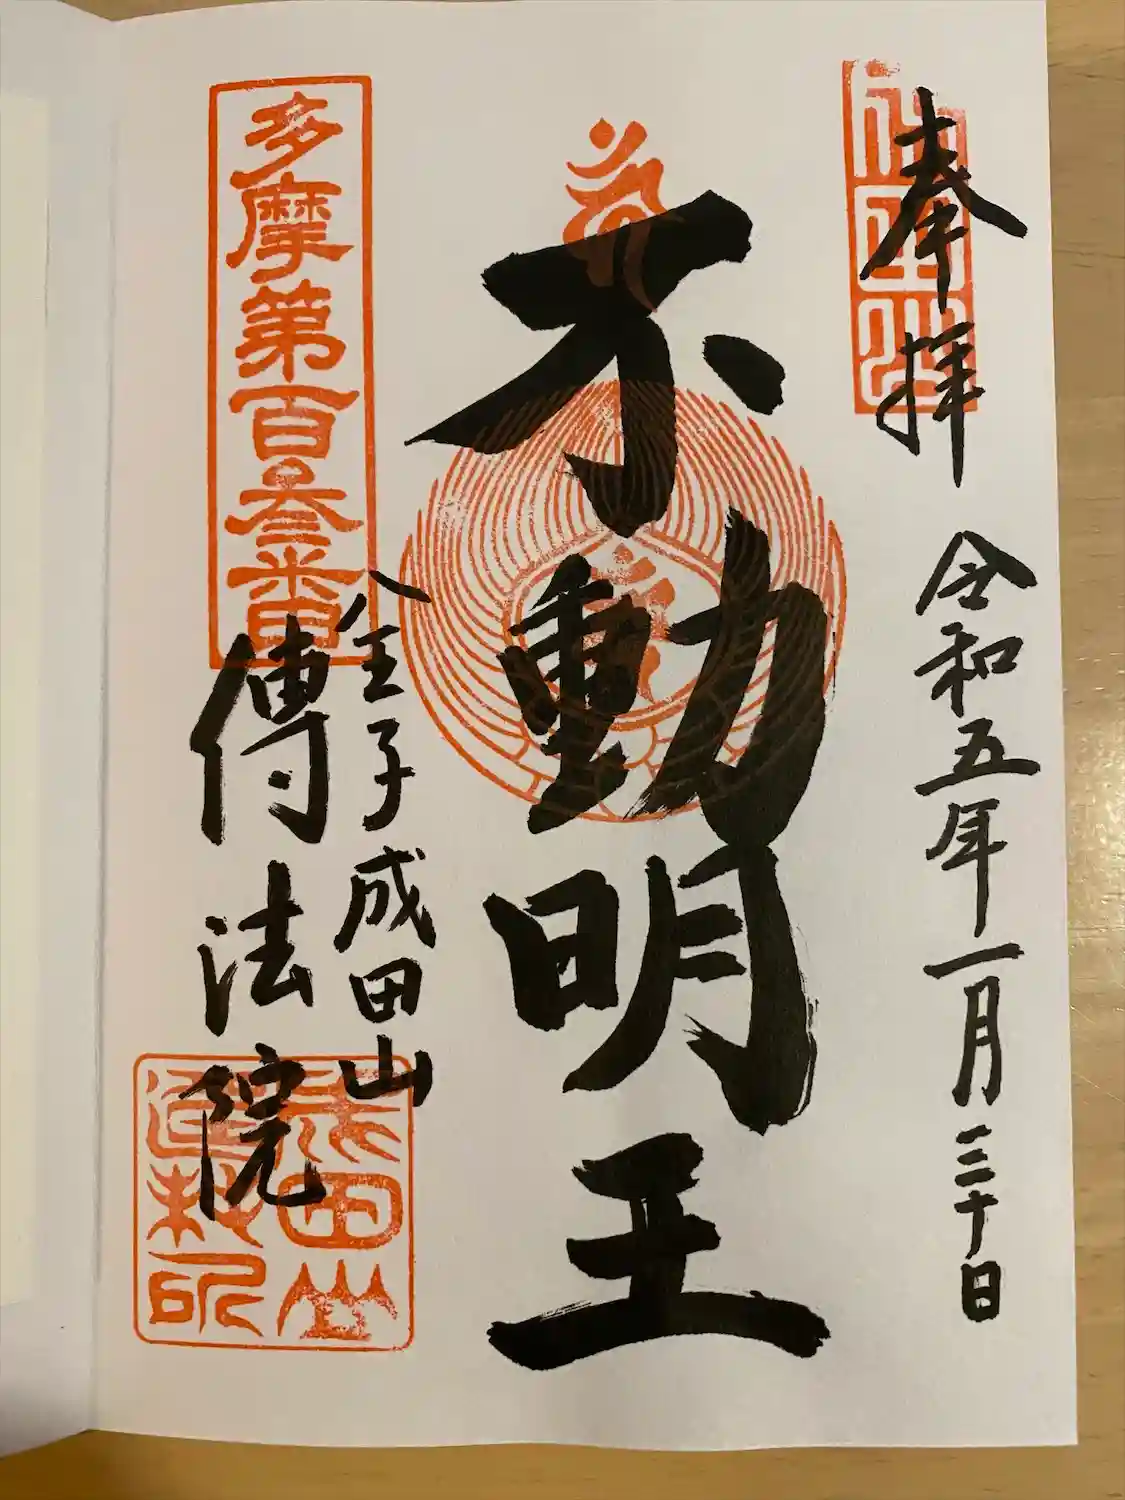 奉拝
令和五年一月三十日
不動明王
金子成田山
傳法院
多摩第百叁番
成田山